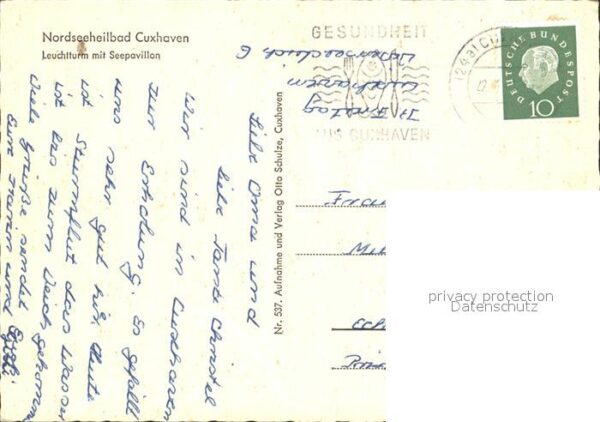 Nordseeheilbad Cuxhaven
Leuchtturm mit Seepavillon
Liebe Oma und
liebe Tante Christel
Wir sind in Cuxhaven
zur Erholung. Es gefällt
uns sehr gut hier. Heute
ist Sturmflut das Wasser
ist bis zum Deich gekommen
Viele Grüße sendet
Eure
und
Nr. 537. Aufnahme und Verlag Otto Schulze, Cuxhaven
Freitag
Cuxhaven
6
GESUNDHEIT
AUS CUXHAVEN
(24a) CU
DEUTSCHE BUNDESPOST
10
Frau
privacy protection
Datenschutz